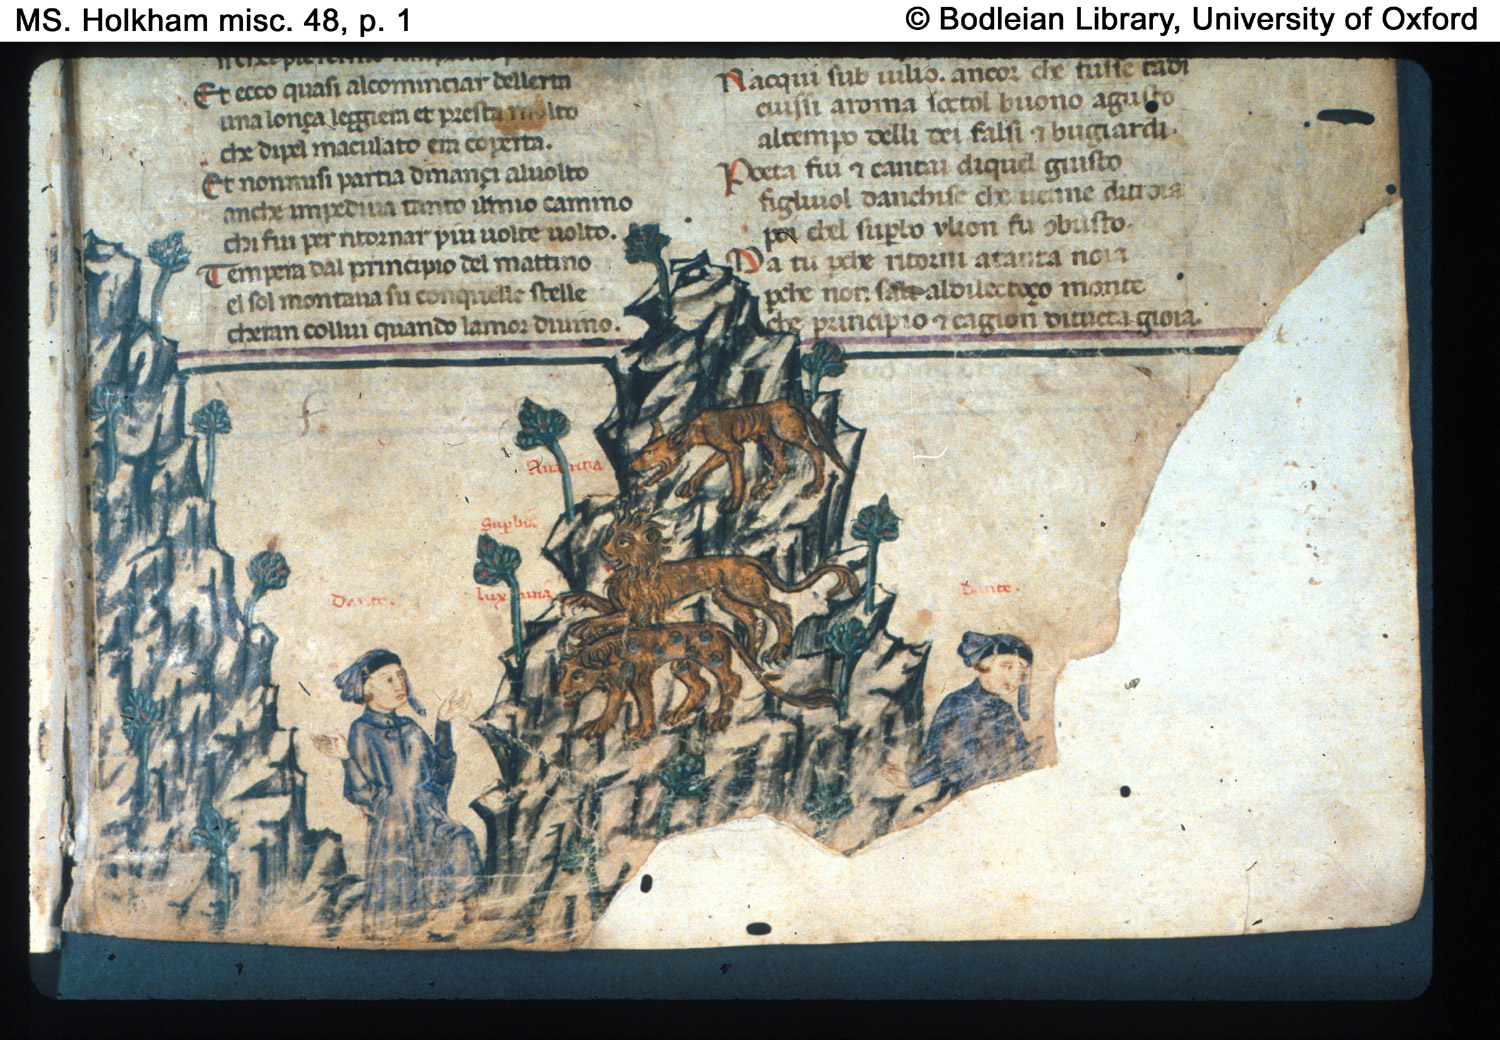 MS. Holkham misc. 48, p. 1
© Bodleian Library, University of Oxford
Et ecco quasi alcominciar dellerta
una lonça leggiera et presta molto
che dipel maculato era coperta.
Et nonmisi partia dinançi aluolto
anche impediua tanto ilmio camino
chi fui per ritornar piu uolte uolto.
Tempera dal principio del mattino
el sol montaua su conquelle stelle
cheran collui quando lamor diuino.
Nacqui sub iulio. ancor che fusse tardi
euissi aroma sottol buono agusto
altempo delli dei falsi ⁊ bugiardi.
Poeta fui ⁊ cantai diquel giusto
figliuol danchise che uenne ditroia
poi chel suplo ylion fu ↄbusto.
Ma tu pche ritorni atanta noia
pche non sali aldilectoço monte
che principio ⁊ cagion ditucta gioia.
Auaritia
Supbia
luxuria
Dante.
Dante.